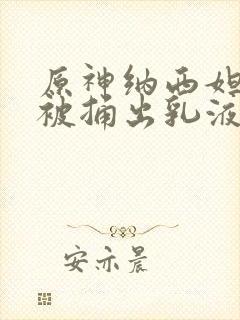 原神纳西妲
被捅出乳液
安亦晨